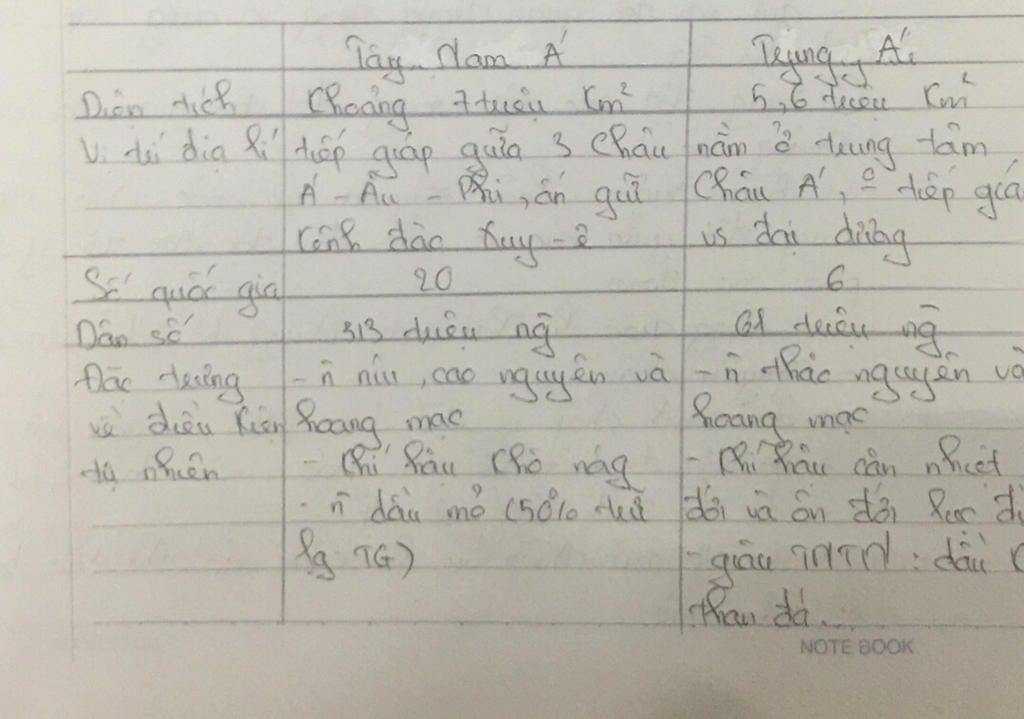 Tây Nam Á Trung Á
Diện tích Khoảng 7 triệu km² 5,6 triệu km²
Vị trí địa lí tiếp giáp giữa 3 Châu nằm ở trung tâm
Á - Âu - Phi, án giữ Châu Á, tiếp giá
kênh đào Xuy-ê vs đại dương
Số quốc gia 20 6
Dân số 313 triệu ng̃ 61 triệu ng̃
Đặc trưng - ñ núi, cao nguyên và - ñ thảo nguyên và
về điều kiện hoang mạc hoang mạc
tự nhiên - Khí hậu khô nóg - Khí hậu cận nhiệt
- ñ dầu mỏ (50% trữ đới và ôn đới lục đị
lg TG) - giàu TNTN : dầu
than đá...
NOTE BOOK